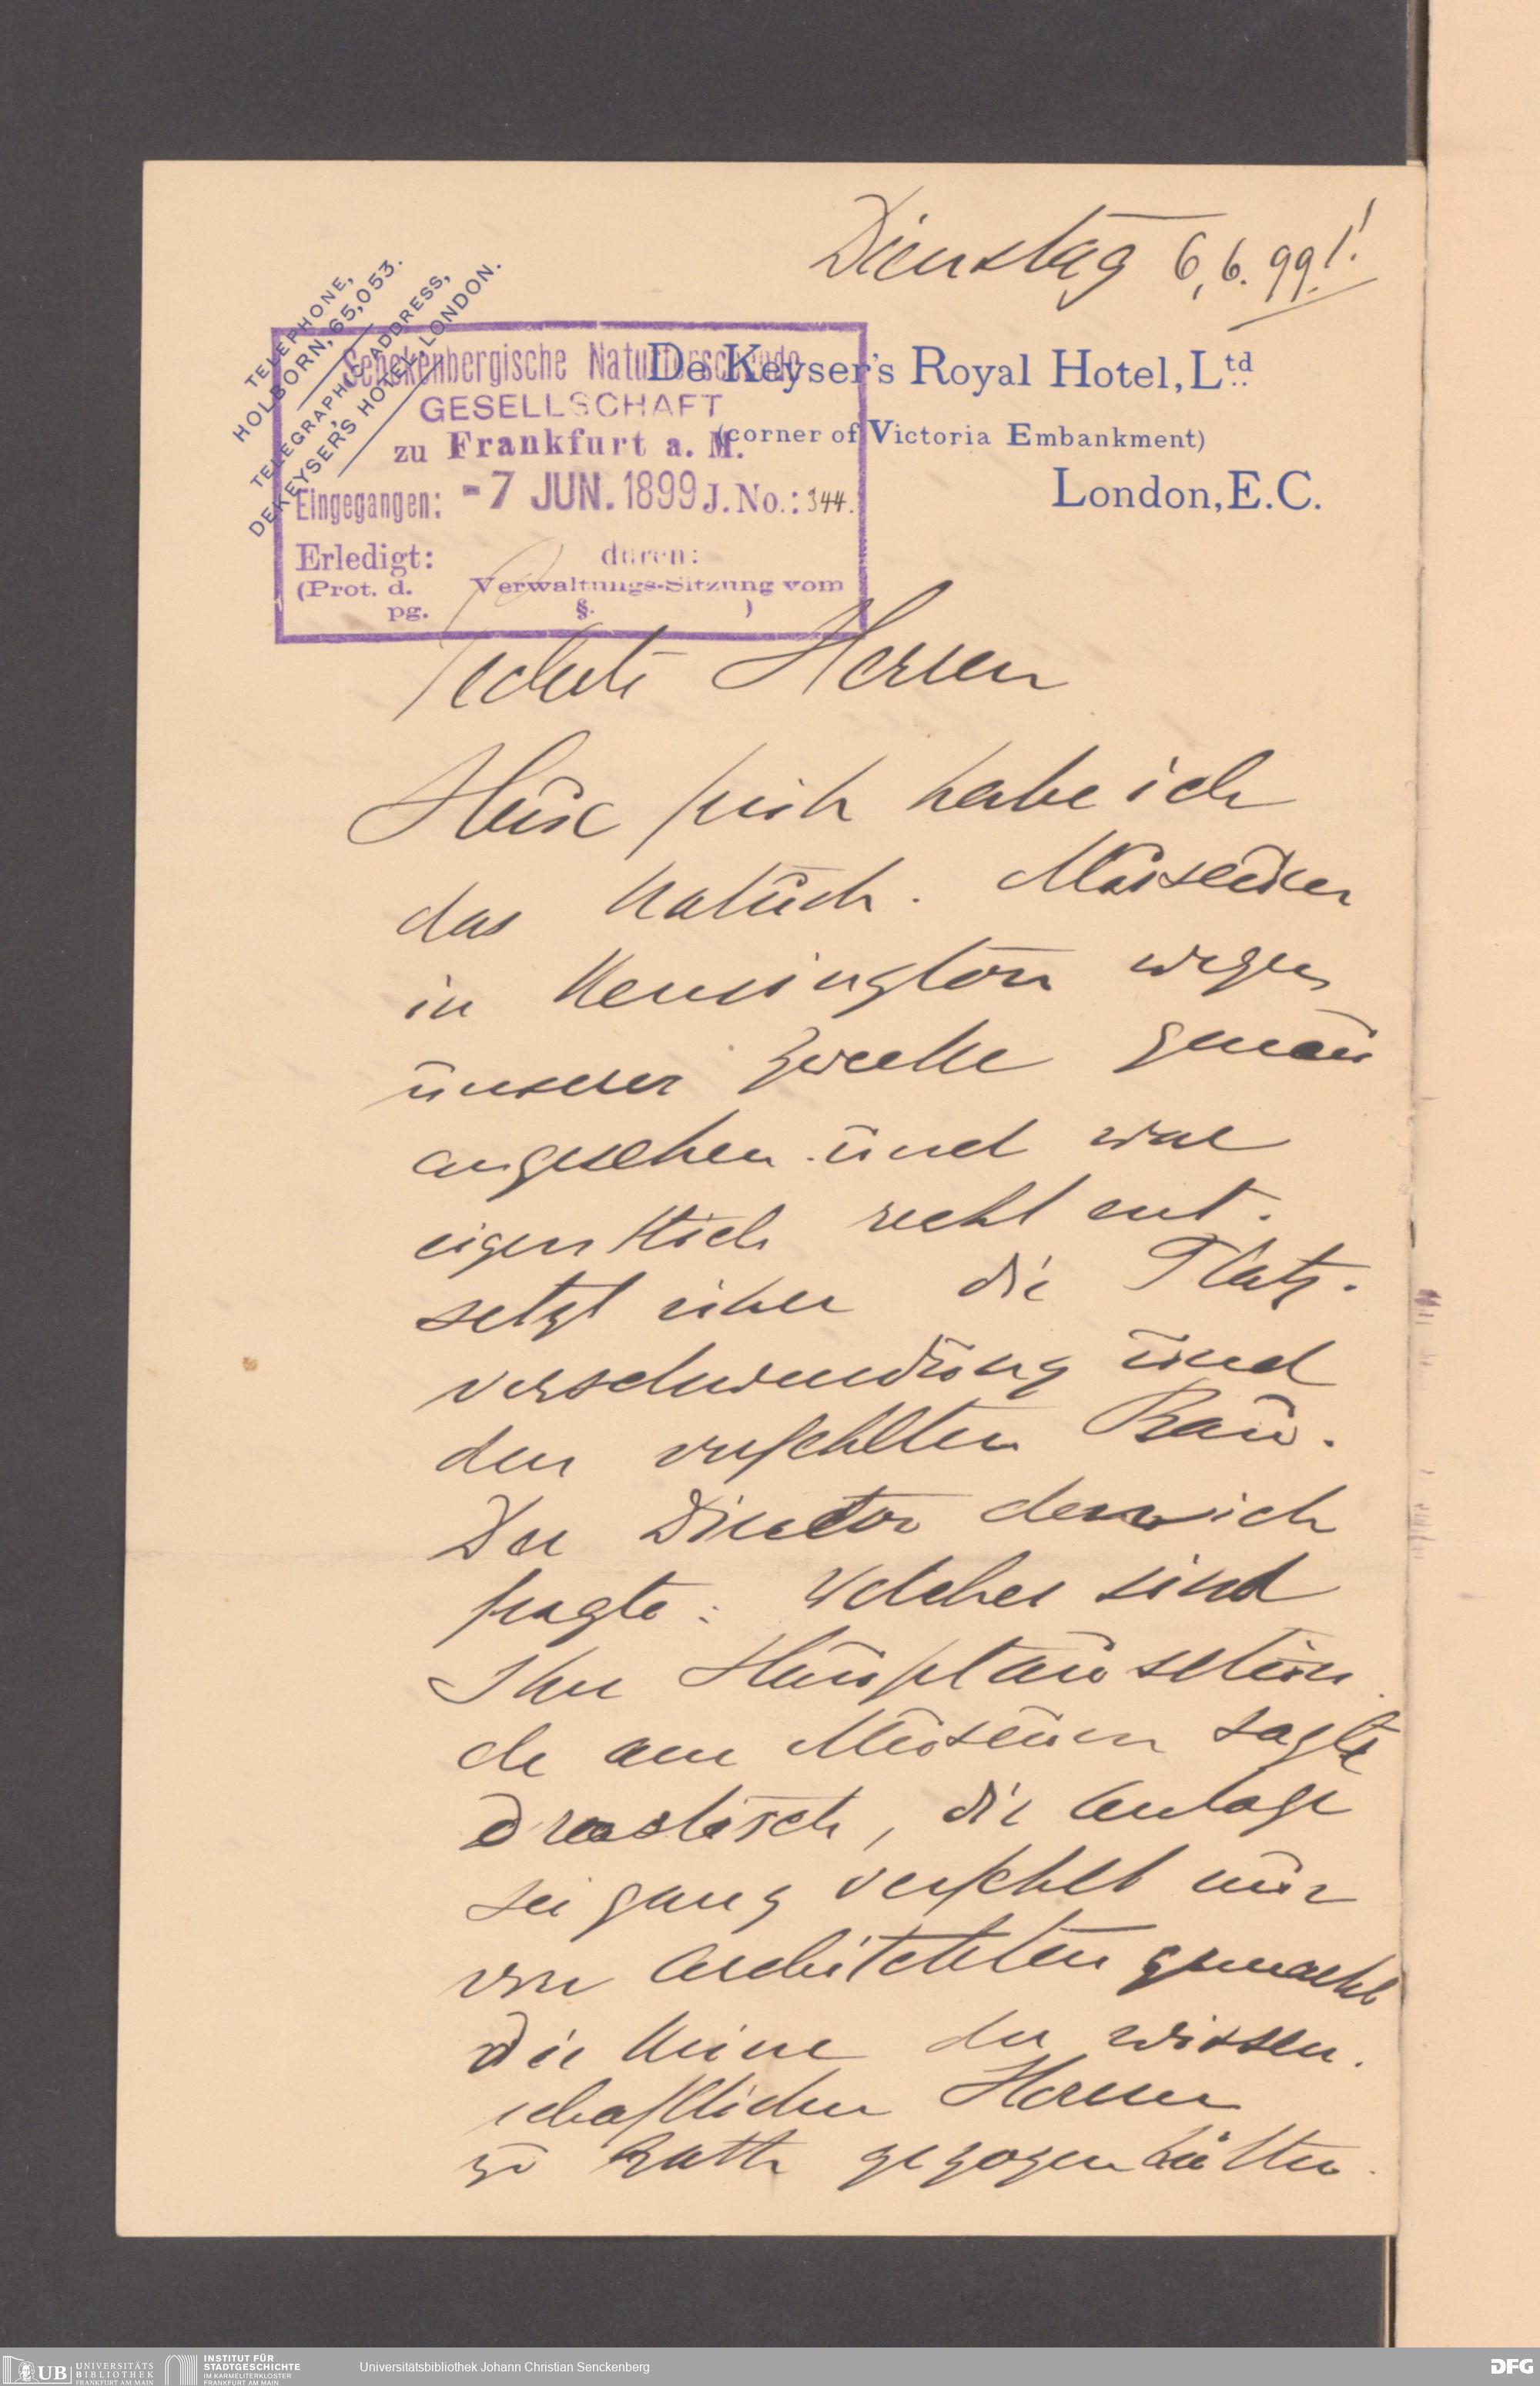 Dienstag 6,6.99!
TELEPHONE,
HOLBORN, 65,053.
TELEGRAPHIC ADDRESS,
DEKEYSER'S HOTEL, LONDON.
De Keyser's Royal Hotel, Ltd
(corner of Victoria Embankment)
London, E.C.
Senckenbergische Naturforschende
GESELLSCHAFT
zu Frankfurt a. M.
Eingegangen: -7 JUN. 1899 J. No.: 344.
Erledigt: durch:
(Prot. d. Verwaltungs-Sitzung vom
pg. §. )
Geehrte Herren
Heute früh habe ich
das Naturh. Museum
in Kensington wegen
unserer Zwecke genau
angesehen und war
eigentlich recht ent-
setzt über die Platz-
verschwendung und
den verfehlten Bau.
Der Director den ich
fragte: Welches sind
Ihre Hauptausstän
de am Museum sagte
drastisch, die Anlage
sei ganz verfehlt nur
von Architekten gemacht
die keine der wissen-
schaftlichen Herren
zu Rath gezogen hätten.
UB UNIVERSITÄTS
BIBLIOTHEK
FRANKFURT AM MAIN
INSTITUT FÜR
STADTGESCHICHTE
IM KARMELITERKLOSTER
FRANKFURT AM MAIN
Universitätsbibliothek Johann Christian Senckenberg
DFG